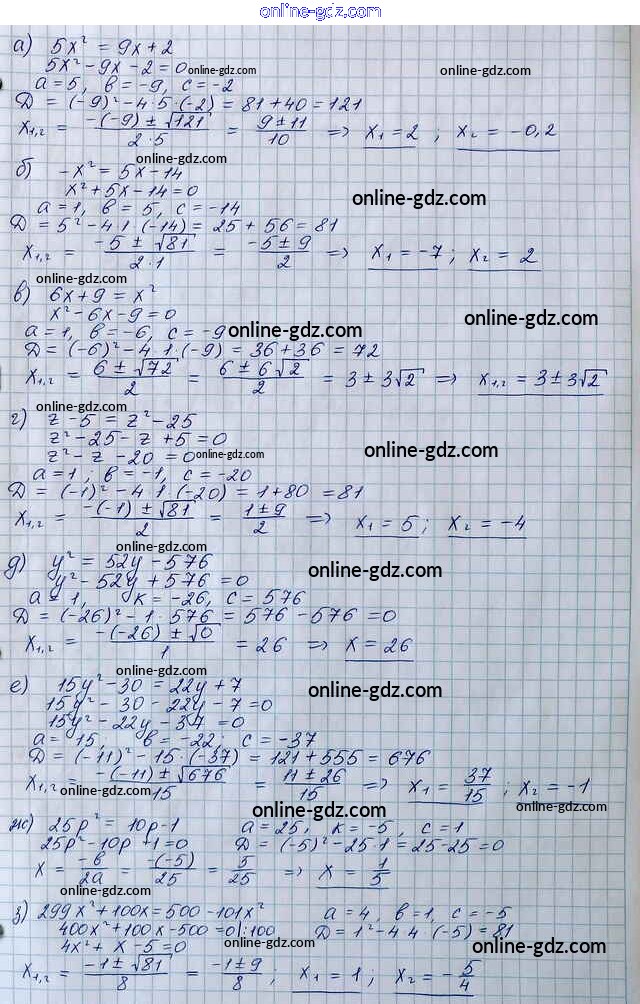 online-gdz.com
а) 5x² = 9x + 2
5x² - 9x - 2 = 0 online-gdz.com online-gdz.com
a = 5, в = -9, c = -2
Д = (-9)² - 4·5·(-2) = 81 + 40 = 121
x₁,₂ = (-(-9) ± √121)/(2·5) = (9 ± 11)/10 => x₁ = 2 ; x₂ = -0,2
online-gdz.com
б) -x² = 5x - 14
x² + 5x - 14 = 0 online-gdz.com
a = 1, в = 5, c = -14
Д = 5² - 4·1·(-14) = 25 + 56 = 81
x₁,₂ = (-5 ± √81)/(2·1) = (-5 ± 9)/2 => x₁ = -7 ; x₂ = 2
online-gdz.com
в) 6x + 9 = x²
x² - 6x - 9 = 0
a = 1, в = -6, c = -9 online-gdz.com online-gdz.com
Д = (-6)² - 4·1·(-9) = 36 + 36 = 72
x₁,₂ = (6 ± √72)/2 = (6 ± 6√2)/2 = 3 ± 3√2 => x₁,₂ = 3 ± 3√2
online-gdz.com
г) z - 5 = z² - 25
z² - 25 - z + 5 = 0
z² - z - 20 = 0 online-gdz.com online-gdz.com
a = 1 ; в = -1, c = -20
Д = (-1)² - 4·1·(-20) = 1 + 80 = 81
x₁,₂ = (-(-1) ± √81)/2 = (1 ± 9)/2 => x₁ = 5 ; x₂ = -4
online-gdz.com
д) y² = 52y - 576
y² - 52y + 576 = 0 online-gdz.com
a = 1, к = -26, c = 576
Д = (-26)² - 1·576 = 576 - 576 = 0
x₁,₂ = (-(-26) ± √0)/1 = 26 => x = 26
online-gdz.com
е) 15y² - 30 = 22y + 7
15y² - 30 - 22y - 7 = 0 online-gdz.com
15y² - 22y - 37 = 0
a = 15, в = -22; c = -37
Д = (-11)² - 15·(-37) = 121 + 555 = 676
x₁,₂ = (-(-11) ± √676)/15 = (11 ± 26)/15 => x₁ = 37/15 ; x₂ = -1
online-gdz.com online-gdz.com
ж) 25p² = 10p - 1 a = 25, к = -5, c = 1
25p² - 10p + 1 = 0 Д = (-5)² - 25·1 = 25 - 25 = 0
x = -в/2a = -(-5)/25 = 5/25 => x = 1/5
online-gdz.com online-gdz.com
з) 299x² + 100x = 500 - 101x² a = 4, в = 1, c = -5
400x² + 100x - 500 = 0 |:100 Д = 1² - 4·4·(-5) = 81
4x² + x - 5 = 0 online-gdz.com online-gdz.com
x₁,₂ = (-1 ± √81)/8 = (-1 ± 9)/8 ; x₁ = 1 ; x₂ = -5/4
online-gdz.com